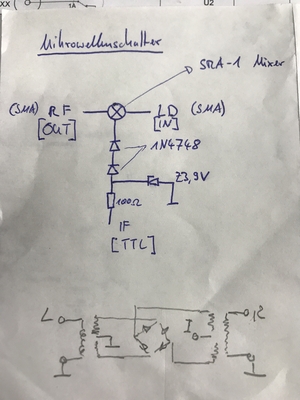 1A
U2
Mikrowellenschalter
SRA-1 Mixer
(SMA) RF LO (SMA)
[OUT] [IN]
1N4748
Z3,9V
100Ω
IF
[TTL]
L I R